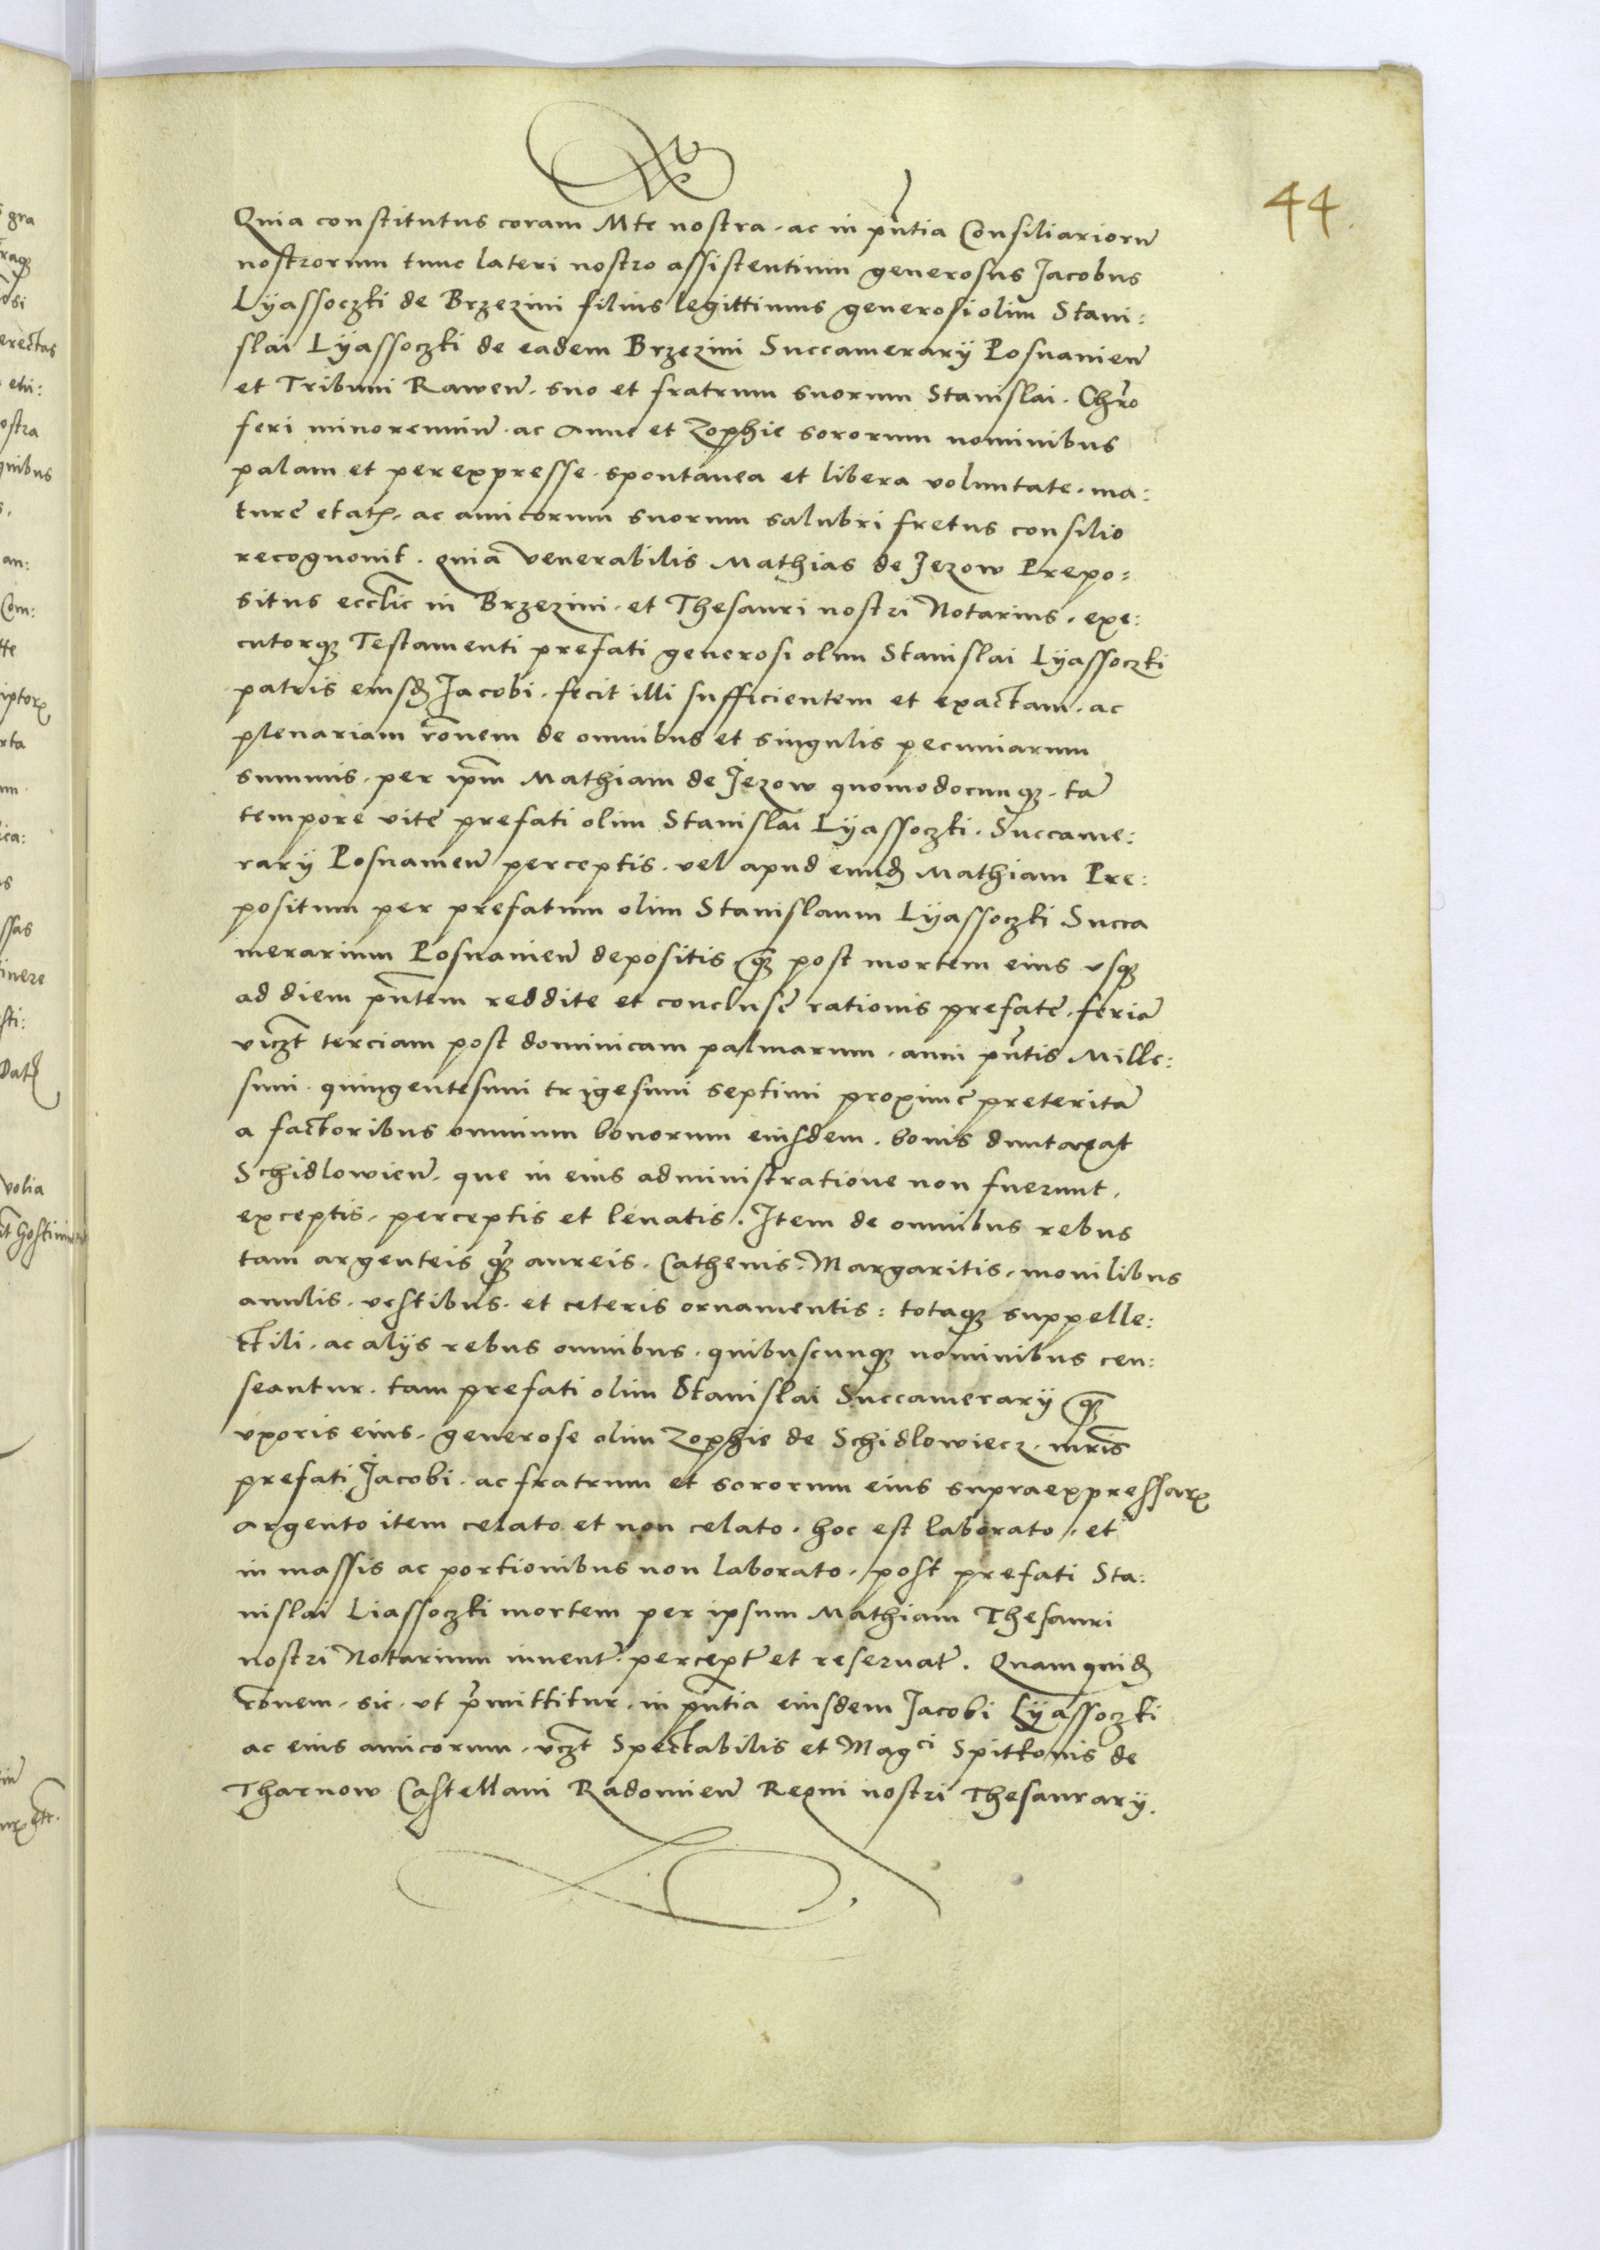 44.
Quia constitutus coram Mte nostra . ac in pñtia Consiliariorũ
nostrorum tunc lateri nostro assistentium generosus Jacobus
Lyassoczki de Brzezini filius legittimus generosi olim Stani:
slai Lyassoczki de eadem Brzezini Succamerarÿ Posnanieñ
et Tribuni Raweñ . suo et fratrum suorum Stanislai . Chr̃o
feri minorennium̃ . ac Anne et Zophie sororum nominibus
palam et perexpresse . spontanea et libera voluntate . ma:
turę etatꝭ . ac amicorum suorum salubri fretus consilio
recognouit . quia Venerabilis Mathias de Jezow Prepo:
situs eccl̃ie in Brzezini . et Thesauri nostri Notarius . exe:
cutorqꝫ Testamenti prefati generosi olim Stanislai Lyassoczki
patris eiusđ Jacobi . fecit illi sufficientem et exactam . ac
plenariam rõnem de omnibus et singulis pecuniarum
summis . per ip̃m Mathiam de Jezow quomodocunqꝫ . tã
tempore vite prefati olim Stanislai Lyassoczki . Succame:
rarÿ Posnanieñ perceptis . vel apud eunđ Mathiam Pre:
positum per prefatum olim Stanislaum Lyassoczki Succa
merarium Posnanieñ depositis qꝫ̃ post mortem eius vsqꝫ
ad diem pñtem reddite et conclusę rationis prefatę . feriã
vicꝫt terciam post dominicam palmarum . anni pñtis Mille:
simi . quingentesimi trigesimi septimi proximę preteritã
a factoribus omnium bonorum eiusdem . bonis duntaxat
Schidlowieñ . que in eius administratione non fuerunt .
exceptis . perceptis et leuatis . Item de omnibus rebus
tam argenteis qꝫ̃ aureis . Cathenis . Margaritis . monilibus
anulis . vestibus . et ceteris ornamentis : totaqꝫ suppelle:
ctili . ac alÿs rebus omnibus . quibuscunqꝫ nominibus cen:
seantur . tam prefati olim Stanislai Succamerarÿ qꝫ̃
vxoris eius . generose olim Zophie de Schidlowiecz . mr̃is
prefati Jacobi . ac fratrum et sororum eius supraexpressarꝝ
argento item celato et non celato . hoc est laborato . et
in massis ac portionibus non laborato . post prefati Sta:
nislai Liassoczki mortem per ipsum Mathiam Thesauri
nostri Notarium inuent̃ . percept̃ et reseruat̃ . Quamquiđ
rõnem . sic . vt p̃mittitur . in pñtia eiusdem Jacobi Lyassoczki
ac eius amicorum . vcꝫt Spectabilis et Magci Spitkonis de
Tharnow Castellani Radomieñ Regni nostri Thesaurarÿ .